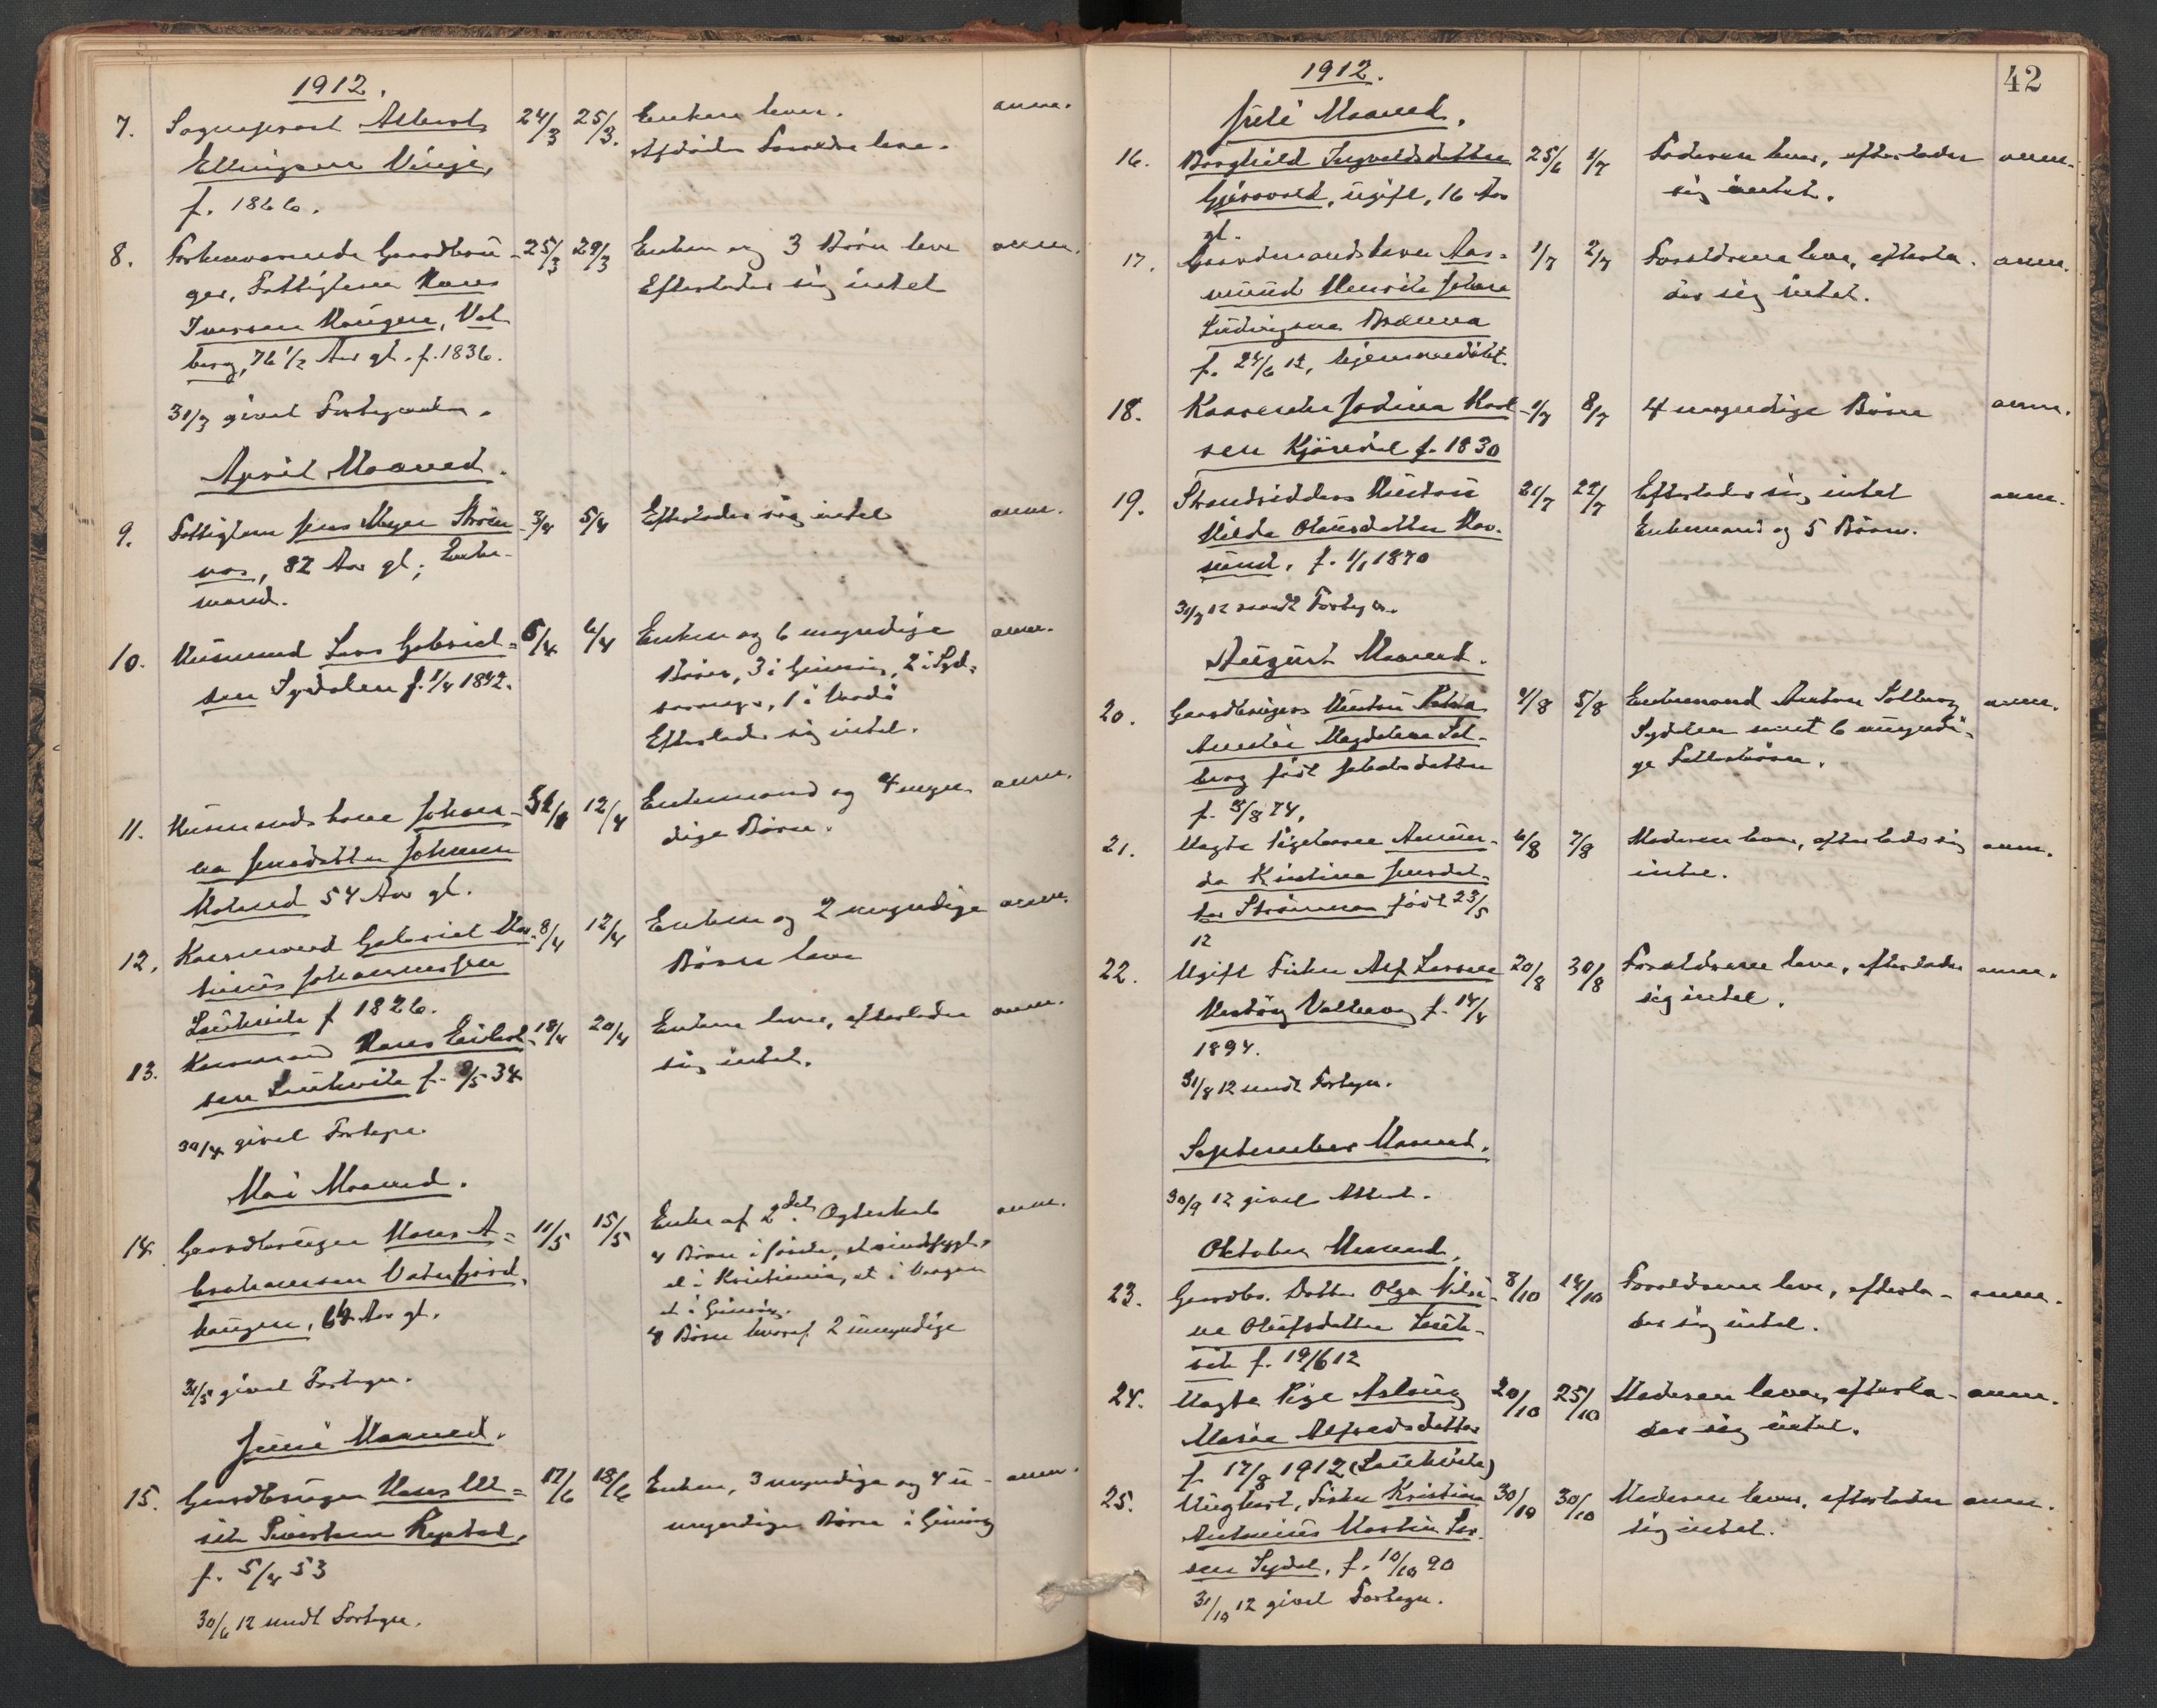 1912.
7. Sogneprest Albert 24/3 25/3. Enken lever. anm.
Ellingsen Vinje, Afdødes Forældre leve.
f. 1866.
8. Forhenværende Gaardbru- 25/3 29/3 Enken og 3 Børn leve anm.
ger, Fattiglem Hans Efterlader sig intet
Iversen Haugen, Vol
berg, 76 1/2 Aar gl. f. 1836.
31/3 givet Fortegnelse.
April Maaned.
9. Fattiglem Jens Meyer Strøm 3/4 5/4 Efterlader sig intet anm.
nes, 82 Aar gl; Enke-
mand.
10. Husmand Lars Gabriel= 5/4 6/4 Enken og 6 myndige anm.
sen Sydalen f. 1/4 1842. Børn, 3 i Gimsø, 2 i Syd-
1 i Vardø
Efterlader sig intet.
11. Husmandskone Johan- 12/4 Enkemand og 4 myn- anm.
na Jensdatter dige Børn.
Holand 54 Aar gl.
12. Kaarmand Gabriel Mar- 8/4 12/4 Enken og 2 myndige anm.
tinus Johannessen Børn leve
Laukvik f 1826.
13. Kaarmand Hans Eilert- 18/4 20/4 Enken lever, efterlader anm.
sen Laukvik f. 9/5 34 sig intet.
30/4 givet Fortegn.
Mai Maaned.
14. Gaardbruger Hans A= 11/5 15/5 Enke af 2det Ægteskab anm.
brahamsen Vaterfjord, 4 Børn i første, et sindssygt,
haugen, 64 Aar gl. et i Kristiania, et i Vaagan
et i Gimsø.
4 Børn hvoraf 2 umyndige
31/5 givet Fortegn.
Juni Maaned.
15. Gaardbruger Hans Ul= 17/6 18/6 Enken, 3 myndige og 4 u- anm.
rik Sivertsen Rystad, myndige Børn i Gimsø
f. 5/4 53
30/6 12 sendt Fortegn.
42
1912.
Juli Maaned.
16. Borghild Ingvaldsdatter 25/6 1/7 Faderen lever, efterlader anm.
Gjersvold, ugift, 16 Aar sig intet.
gl.
17. Gaardmandsbarn Aas= 1/7 2/7 Forældrene leve, efterla- anm.
mund Henrik Johan der sig intet.
Ludvigsen Brenna
f. 24/6 12, hjemmedøbt.
18. Kaarenke Jodina Karl- 1/7 8/7 4 myndige Børn anm.
sen Kjøredal f. 1830
19. Strandsidders Hustru 21/7 22/7 Efterlader sig intet anm.
Hilda Olausdatter Hav- Enkemand og 5 Børn.
sund, f. 1/1 1870
31/7 12 sendt Fortegn.
August Maaned.
20. Gaardbrugers Hustru Petra 4/8 5/8 Enkemand Anton Solberg anm.
Amalie Magdalena Sol- Sydalen samt 6 umyndi-
berg født Jakobsdatter ge Fællesbørn.
f. 3/8 74,
21. Uægte Pigebarn Aman- 6/8 7/8 Moderen lever, efterlader sig anm.
da Kristina Jensdat- intet.
ter Strømmen født 23/5
12
22. Ugift Fisker Alf Larsen 20/8 30/8 Forældrene leve, efterlader anm.
Valberg f. 14/4 sig intet.
1894.
31/8 12 sendt Fortegn.
September Maaned.
30/9 12 givet Attest.
Oktober Maaned.
23. Gaardbr. Datter Olga Nilsi- 8/10 14/10 Forældrene leve, efterla- anm.
ne Olufsdatter Lauk- der sig intet.
vik f. 19/6 12
24. Uægte Pige Aslaug 20/10 25/10 Moderen lever, efterla- anm.
Marie Alfredsdatter der sig intet.
f. 17/8 1912 (Laukvik)
25. Ungkarl, Fisker Kristian 30/10 30/10 Moderen lever, efterlader anm.
Antonius Martin Lar- sig intet.
sen Sydal, f. 10/10 90
31/10 12 givet Fortegn.